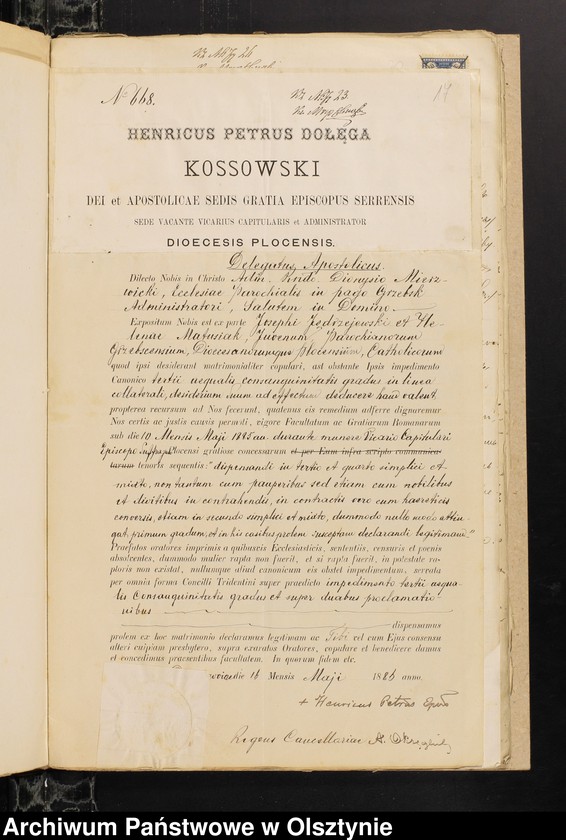 № 668.
19
HENRICUS PETRUS DOŁĘGA
KOSSOWSKI
DEI et APOSTOLICAE SEDIS GRATIA EPISCOPUS SERRENSIS
SEDE VACANTE VICARIUS CAPITULARIS et ADMINISTRATOR
DIOECESIS PLOCENSIS.
Delegatus Apostolicus.
Dilecto Nobis in Christo Dionysio Mierz-
wicki, Ecclesiae Parochialis in pago Grzebsk
Administratori, Salutem in Domino.
Expositum Nobis est ex parte Josephi Jędrzejewski et He-
lenae Matusiak, Juvenum, Parochianorum
Grzebscensium, Dioecesanorumque Plocensium, Catholicorum
quod ipsi desiderant matrimonialiter copulari, ast obstante Ipsis impedimento
Canonico tertii aequalis consanguinitatis gradus in linea
collaterali, desiderium suum ad effectum deducere haud valent,
propterea recursum ad Nos fecerunt, quatenus eis remedium adferre dignaremur
Nos certis ac justis causis permoti, vigore Facultatum ac Gratiarum Romanarum
sub die 10 Mensis Maji 1885 an. durante munere Vicarii Capitulari
Episcopo Suffrag. Plocensi gratiose concessarum et per Eum scripto communica-
tarum tenoris sequentis: "dispensandi in tertio et quarto simplici et
mixto, non tantum cum pauperibus sed etiam cum nobilibus
et divitibus in contrahendis, in contractis vero cum haereticis
conversis, etiam in secundo simplici et mixto, dummodo nullo modo attin-
gat primum gradum, et in his casibus prolem susceptam declarandi legitimam."
Praefatos oratores imprimis a quibusvis Ecclesiasticis, sententiis, censuris et poenis
absolventes, dummodo mulier rapta non fuerit, et si rapta fuerit, in potestate ra-
ptoris non existat, nullumque aliud canonicum eis obstet impedimentum, servata
per omnia forma Concilii Tridentini super praedicto impedimento tertii aequa-
lis Consanguinitatis gradus et super duabus proclamatio-
nibus
dispensamus
prolem ex hoc matrimonio declaramus legitimam ac Tibi vel cum Ejus consensu
alteri cuipiam presbytero, supra exaratos Oratores, copulare et benedicere damus
et concedimus praesentibus facultatem. In quorum fidem etc.
die 16 Mensis Maji 1885 anno.
+ Henricus Petrus Eppus
Regens Cancellariae
Archiwum Państwowe w Olsztynie